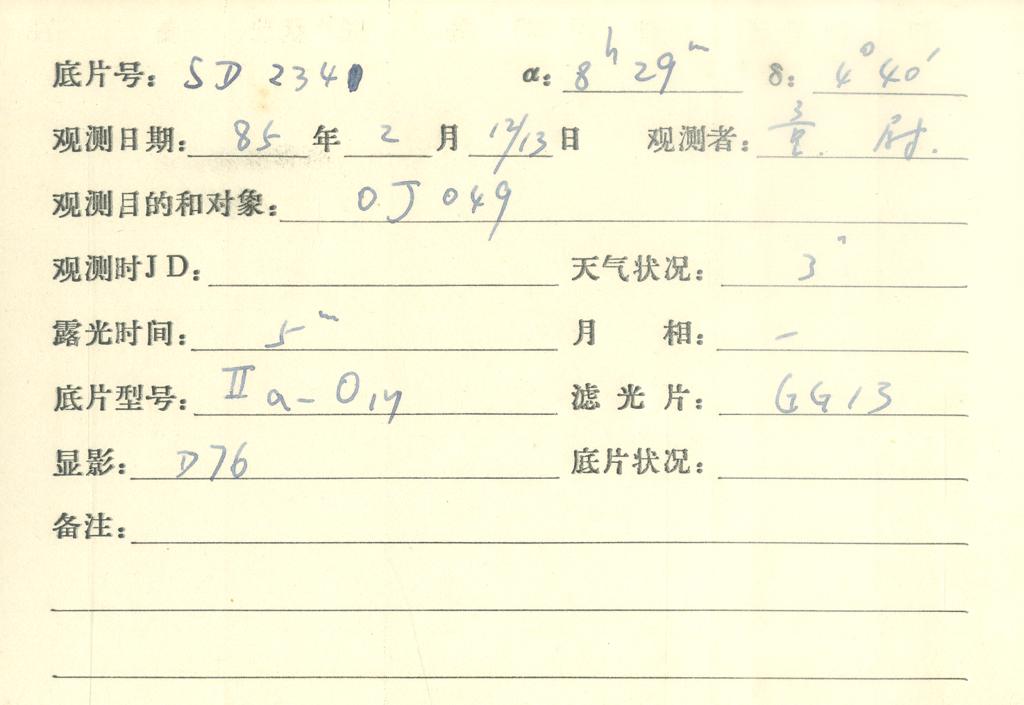 底片号: SD 2341 α: 8ʰ 29ᵐ δ: 4° 40′
观测日期: 85 年 2 月 12/13 日 观测者:
观测目的和对象: OJ 049
观测时JD: 天气状况: 3"
露光时间: 5ᵐ 月 相: -
底片型号: IIa-O, 滤光片: GG13
显影: D76 底片状况:
备注: